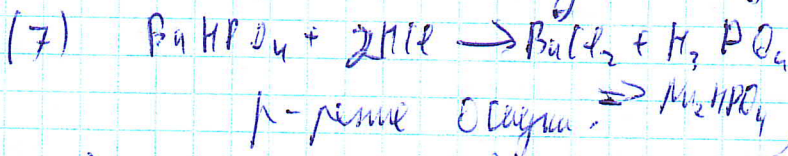 (7) BaHPO₄ + 2HCl → BaCl₂ + H₃PO₄
р-рение осадка. ⇒ Na₂HPO₄